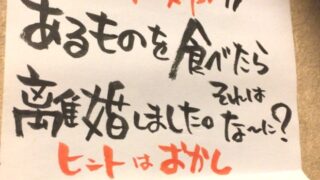 あるものを食べたら
離婚しました。それは
な〜に?
ヒントはおかし